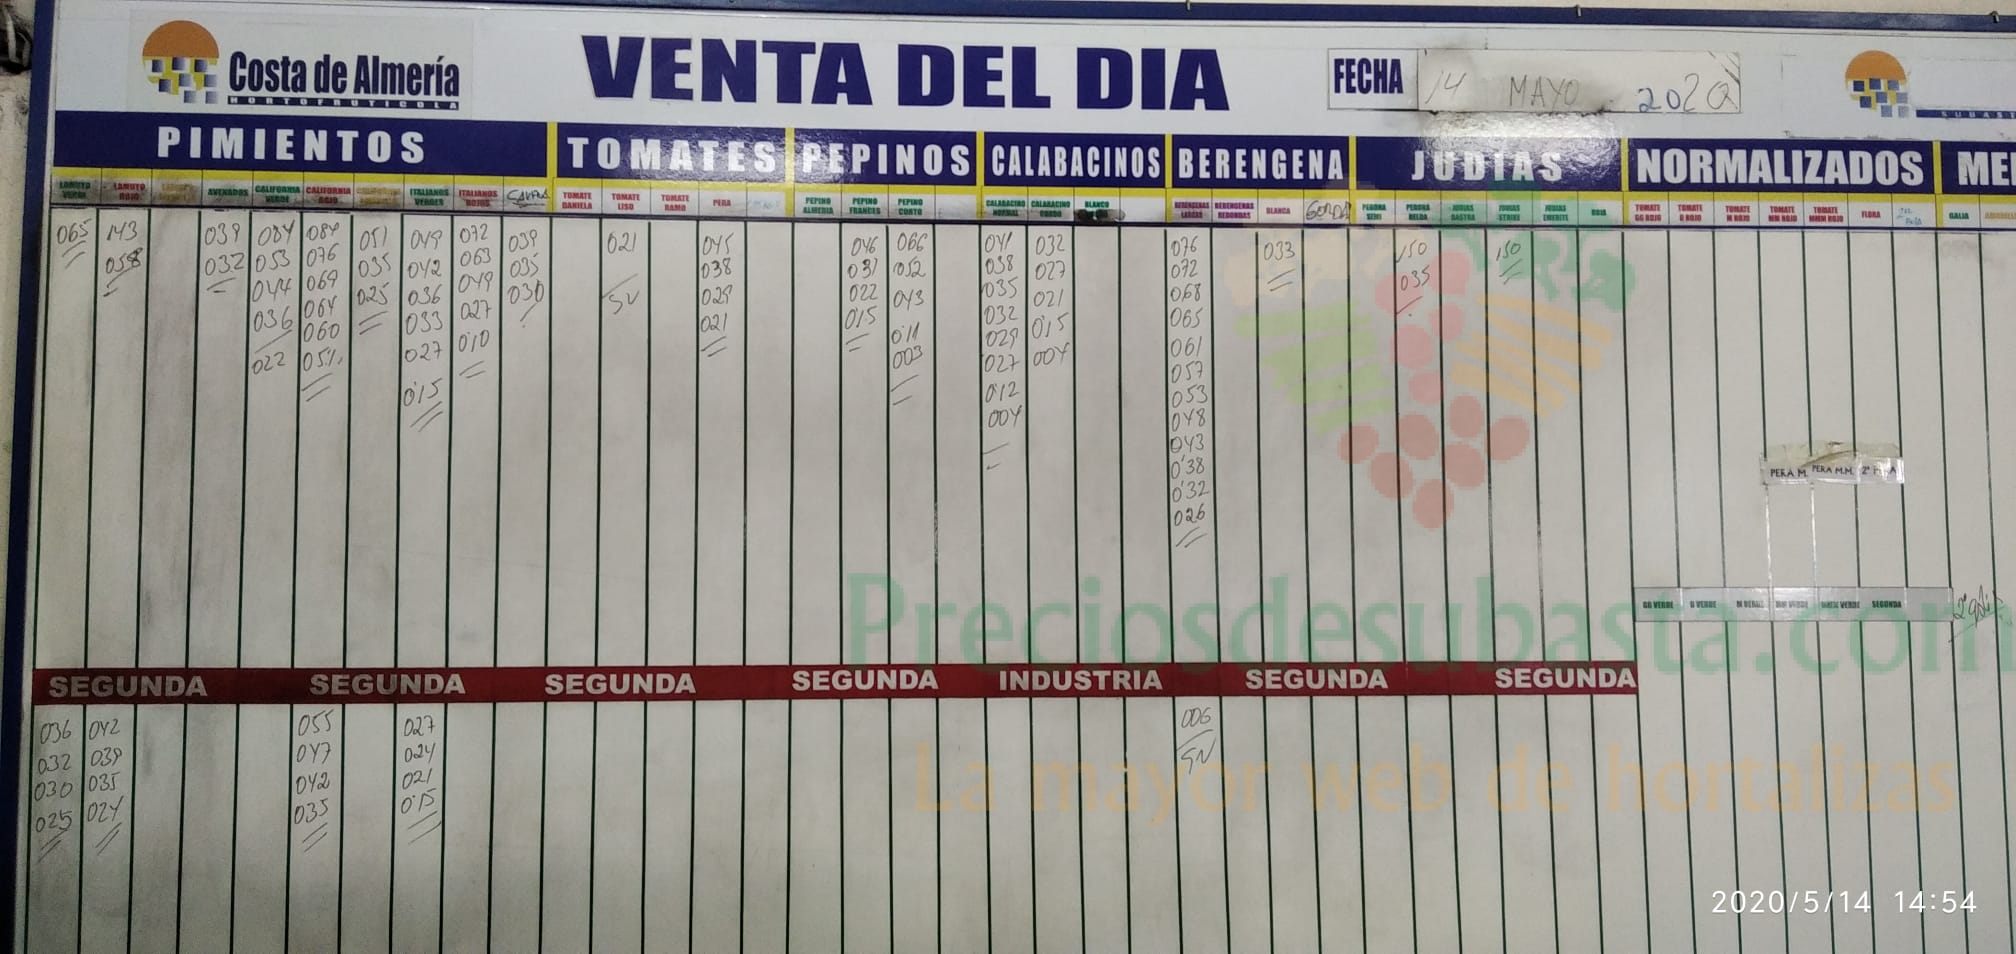 Costa de Almería
HORTOFRUTICOLA
VENTA DEL DIA
FECHA 14 MAYO 2020
PIMIENTOS TOMATES PEPINOS CALABACINOS BERENGENA JUDIAS NORMALIZADOS
LAMUYO ROJO
AVENADOS
CALIFORNIA VERDE
CALIFORNIA ROJO
ITALIANOS VERDES
ITALIANOS ROJOS
TOMATE DANIELA
TOMATE LISO
TOMATE RAMO
PERA
PEPINO ALMERIA
PEPINO FRANCES
PEPINO CORTO
CALABACINO NORMAL
CALABACINO GORDO
BLANCO
BERENGENAS LARGAS
BERENGENAS REDONDAS
BLANCA
GORDA
PERONA SEMI
PERONA HELDA
JUDIAS STRIKE
JUDIAS EMERITE
ROJA
TOMATE GG ROJO
TOMATE G ROJO
TOMATE M ROJO
TOMATE MM ROJO
TOMATE MMM ROJO
FLORA
GALIA
065
143
058
039
032
084
053
044
036
022
084
076
069
064
060
051
051
035
025
049
042
036
033
027
0'15
072
063
049
027
0'10
039
035
030
021
SV
045
038
029
021
046
031
022
0'15
066
052
043
0'11
003
041
038
035
032
029
027
0'12
004
032
027
021
0'15
004
076
072
068
065
061
057
053
048
043
0'38
0'32
026
033
150
035
150
PERA M. PERA M.M.
GG VERDE G VERDE M VERDE MM VERDE MMM VERDE SEGUNDA
SEGUNDA SEGUNDA SEGUNDA SEGUNDA INDUSTRIA SEGUNDA SEGUNDA
036
032
030
025
042
039
035
024
055
047
042
035
027
024
021
0'15
006
SN
Preciosdesubasta.com
La mayor web de hortalizas
2020/5/14 14:54